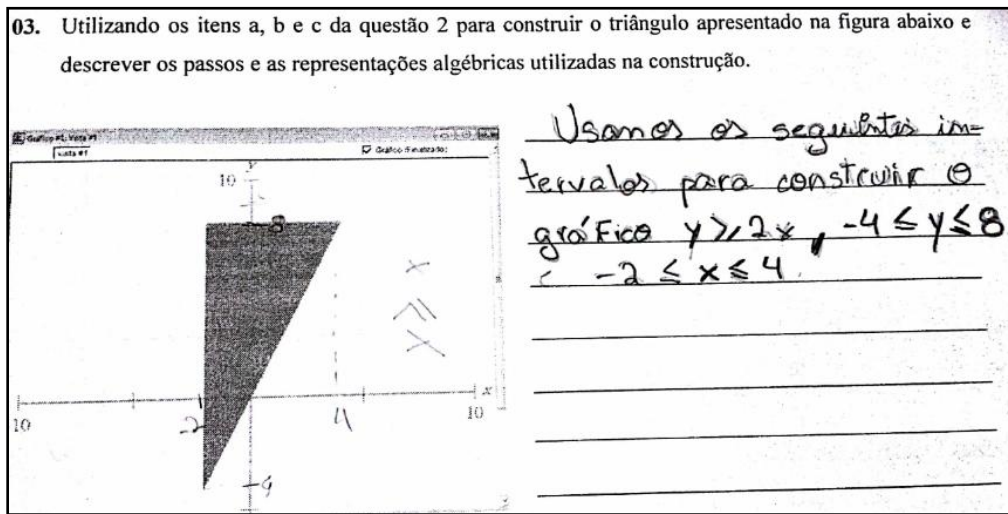 03. Utilizando os itens a, b e c da questão 2 para construir o triângulo apresentado na figura abaixo e
descrever os passos e as representações algébricas utilizadas na construção.
Gráfico #1: Vista #1
Vista #1
y
10
8
-2
4
x
10
10
-4
Usamos os seguintes in-
tervalos para construir o
gráfico y ≥ 2x, -4 ≤ y ≤ 8
e -2 ≤ x ≤ 4.